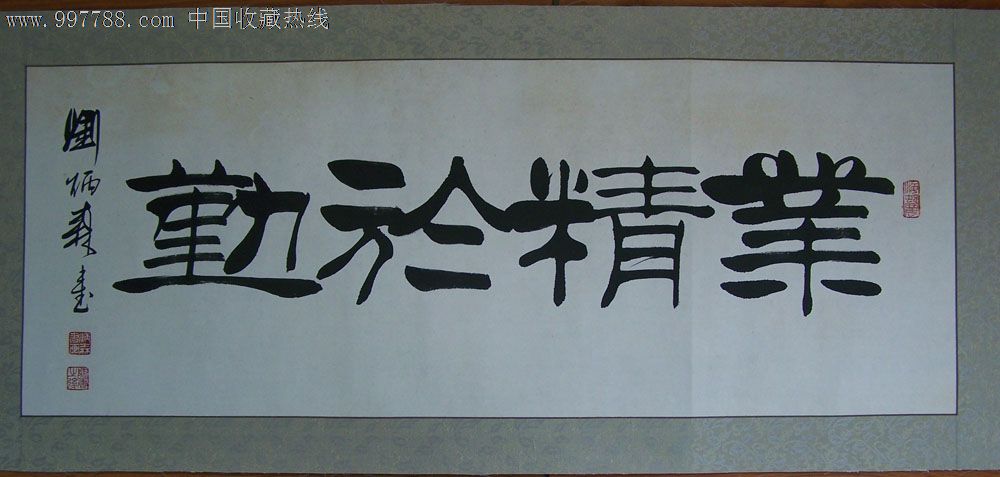 www.997788.com 中国收藏热线
業精於勤
劉炳森書